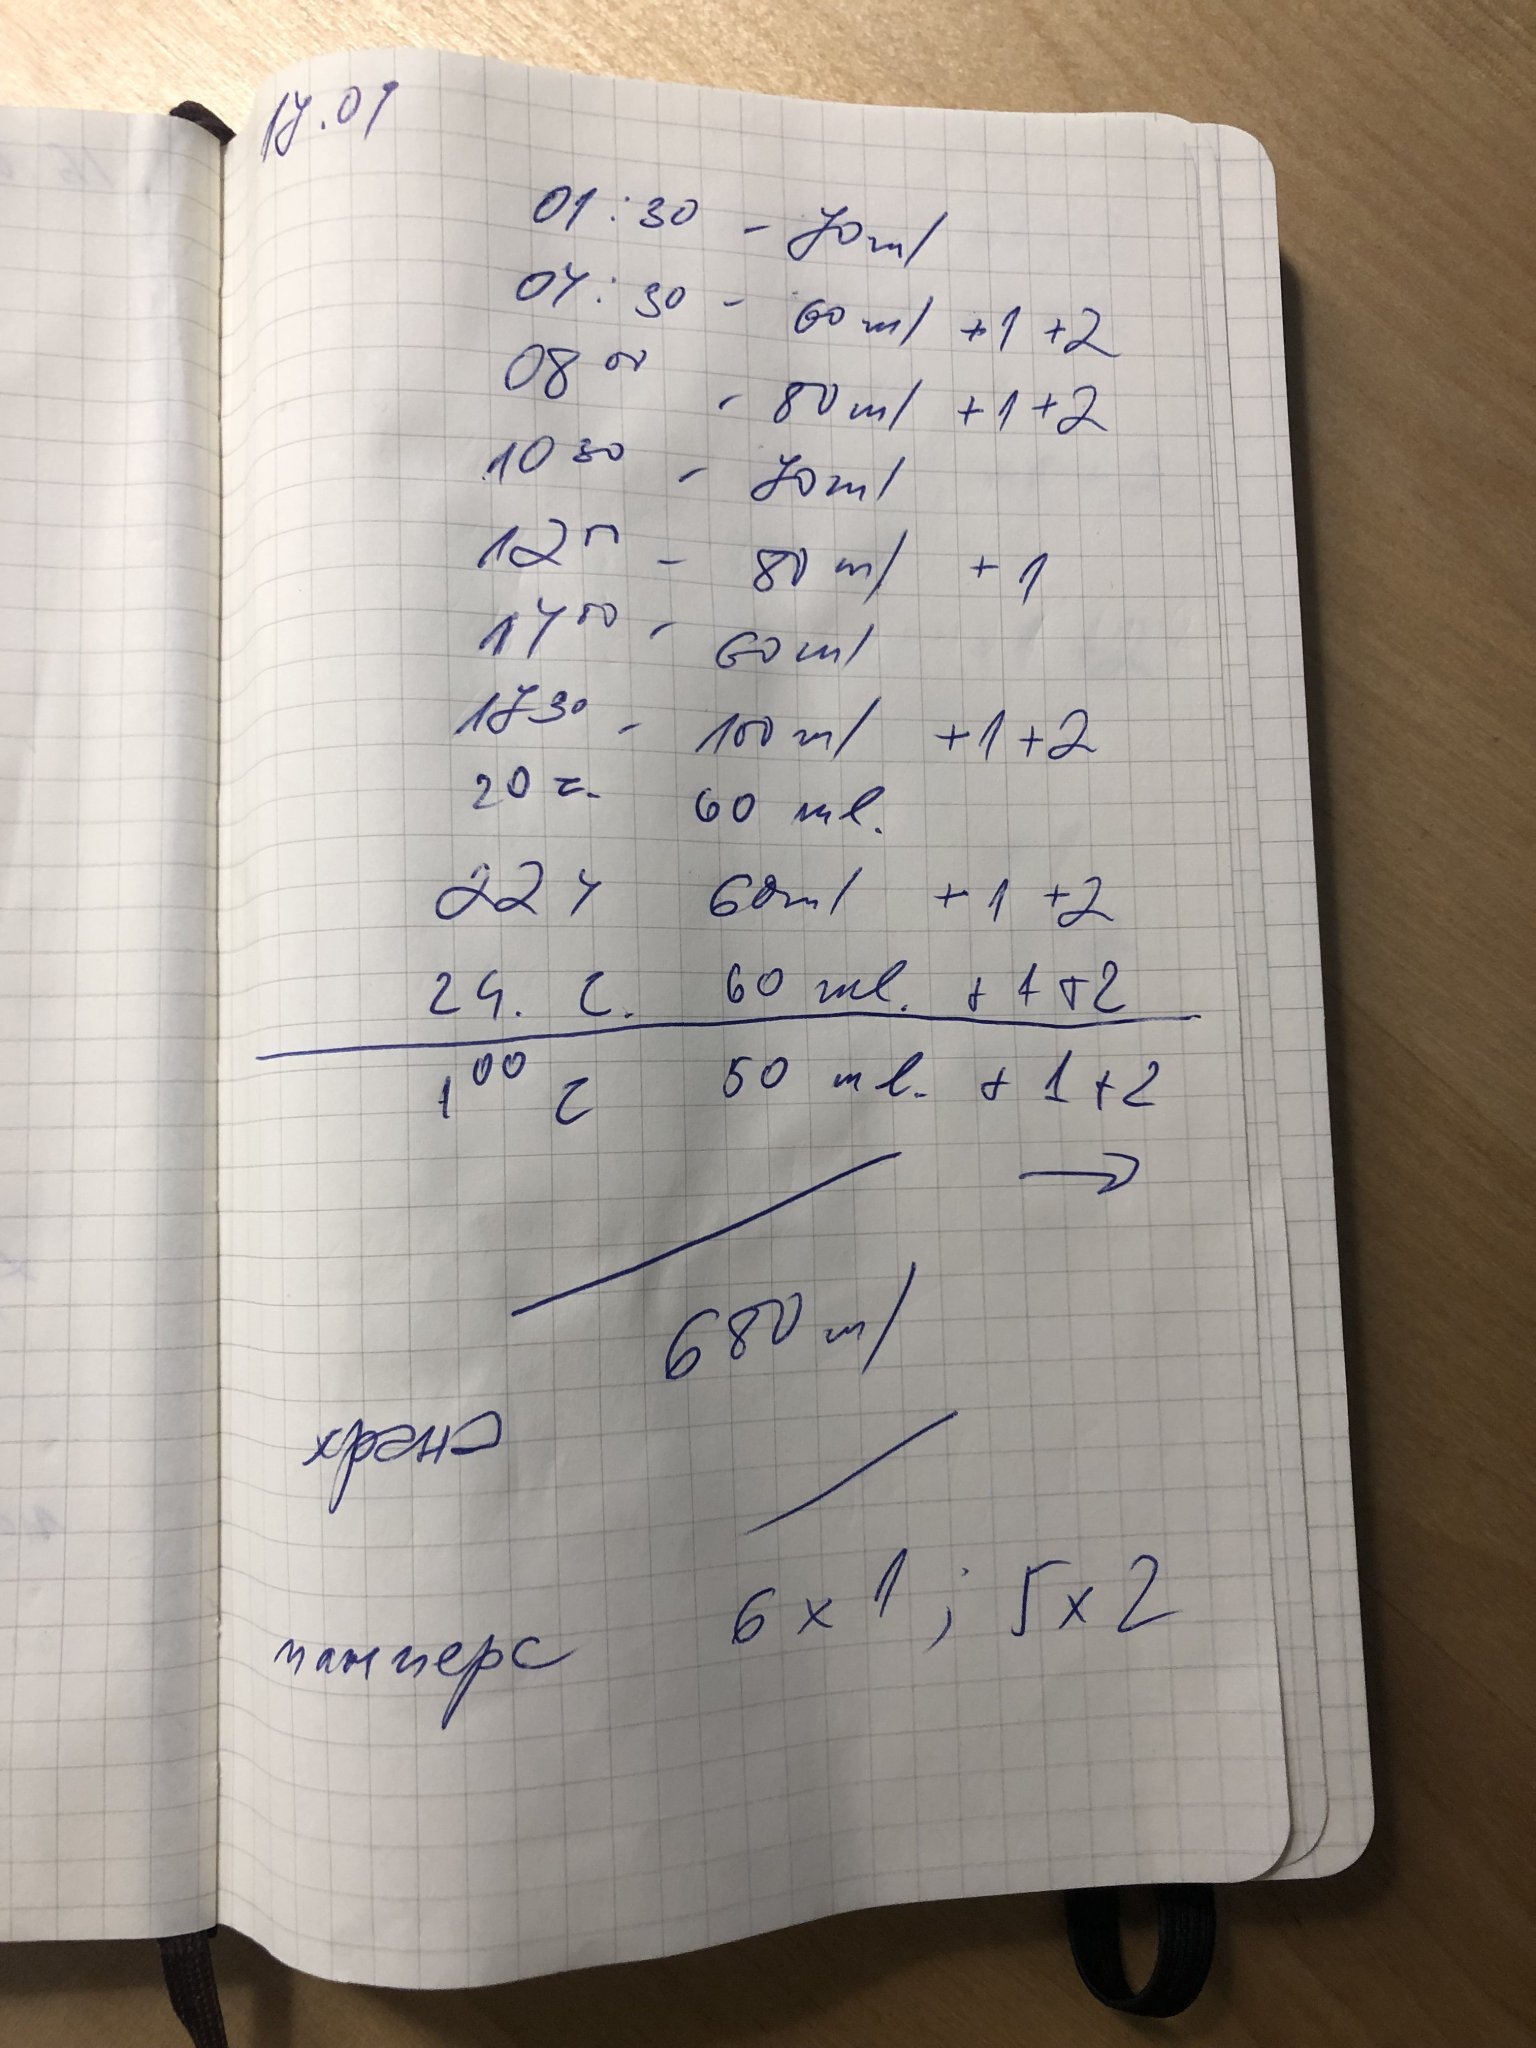 17.01
01:30 - 70ml
04:30 - 60ml +1 +2
08 00 - 80ml +1+2
10 30 - 70ml
12 00 - 80ml +1
14 00 - 60ml
17 30 - 100ml +1+2
20 ч. 60 ml.
22 ч 60ml +1 +2
24. ч. 60 ml. +1+2
1 00 ч 50 ml. +1+2
→
680ml
храна
6x1; 5x2
памперс